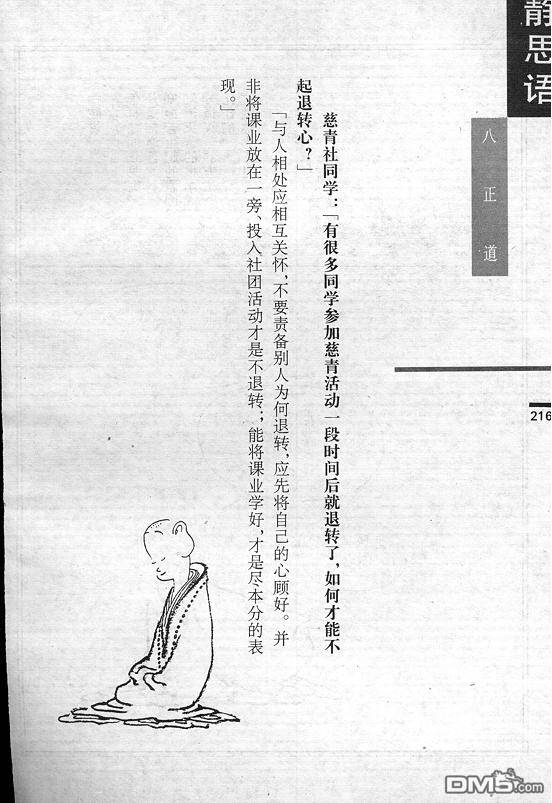 静思语
八正道
216
慈青社同学：「有很多同学参加慈青活动一段时间后就退转了，如何才能不
起退转心？」
「与人相处应相互关怀，不要责备别人为何退转，应先将自己的心顾好。并
非将课业放在一旁、投入社团活动才是不退转；能将课业学好，才是尽本分的表
现。」
DM5.com